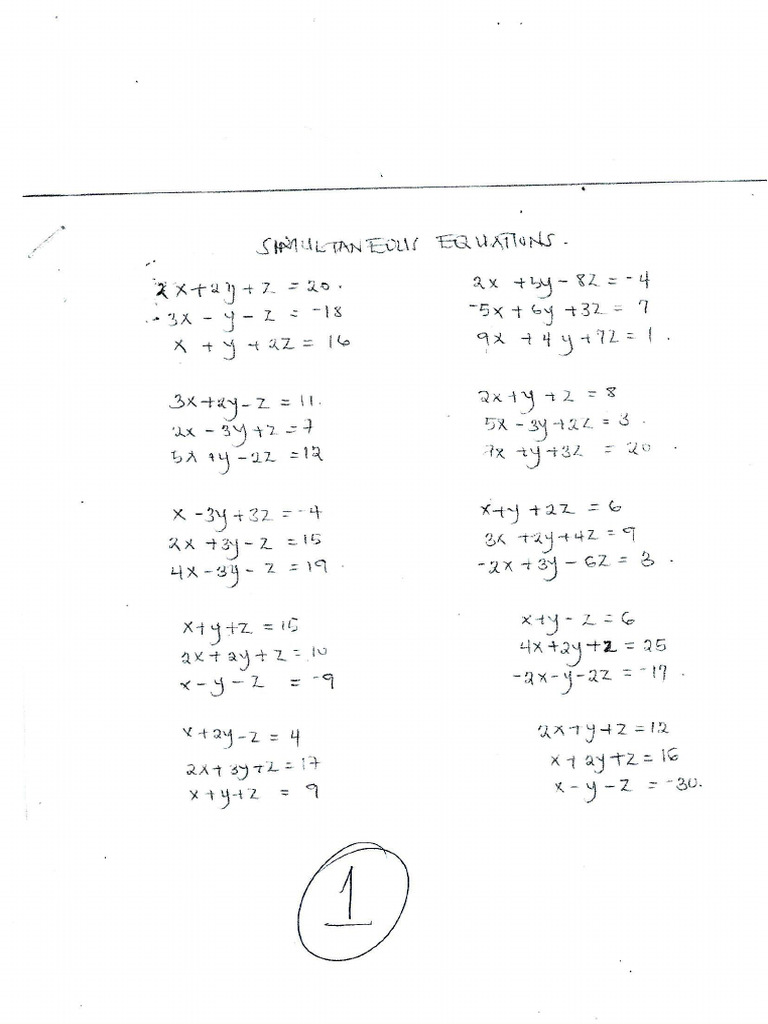 SIMULTANEOUS EQUATIONS.
2x+2y+z = 20.
-3x - y - z = -18
x + y + 2z = 16
3x+2y-z = 11.
2x - 3y+z = 7
5x +y - 2z = 12
x - 3y + 3z = -4
2x +3y - z = 15
4x - 3y - z = 19.
x+y+z = 15
2x+2y+z = 10
x - y - z = -9
x+2y-z = 4
2x+3y+z = 17
x+y+z = 9
2x +3y - 8z = -4
-5x + 6y + 3z = 7
9x + 4y + 7z = 1.
2x+y+z = 8
5x - 3y +2z = 3.
7x +y+3z = 20.
x+y +2z = 6
3x +2y+4z = 9
-2x+3y - 6z = 3.
x+y - z = 6
4x+2y+z = 25
-2x-y-2z = -17.
2x+y+z = 12
x+2y+z = 16
x - y - z = -30.
1